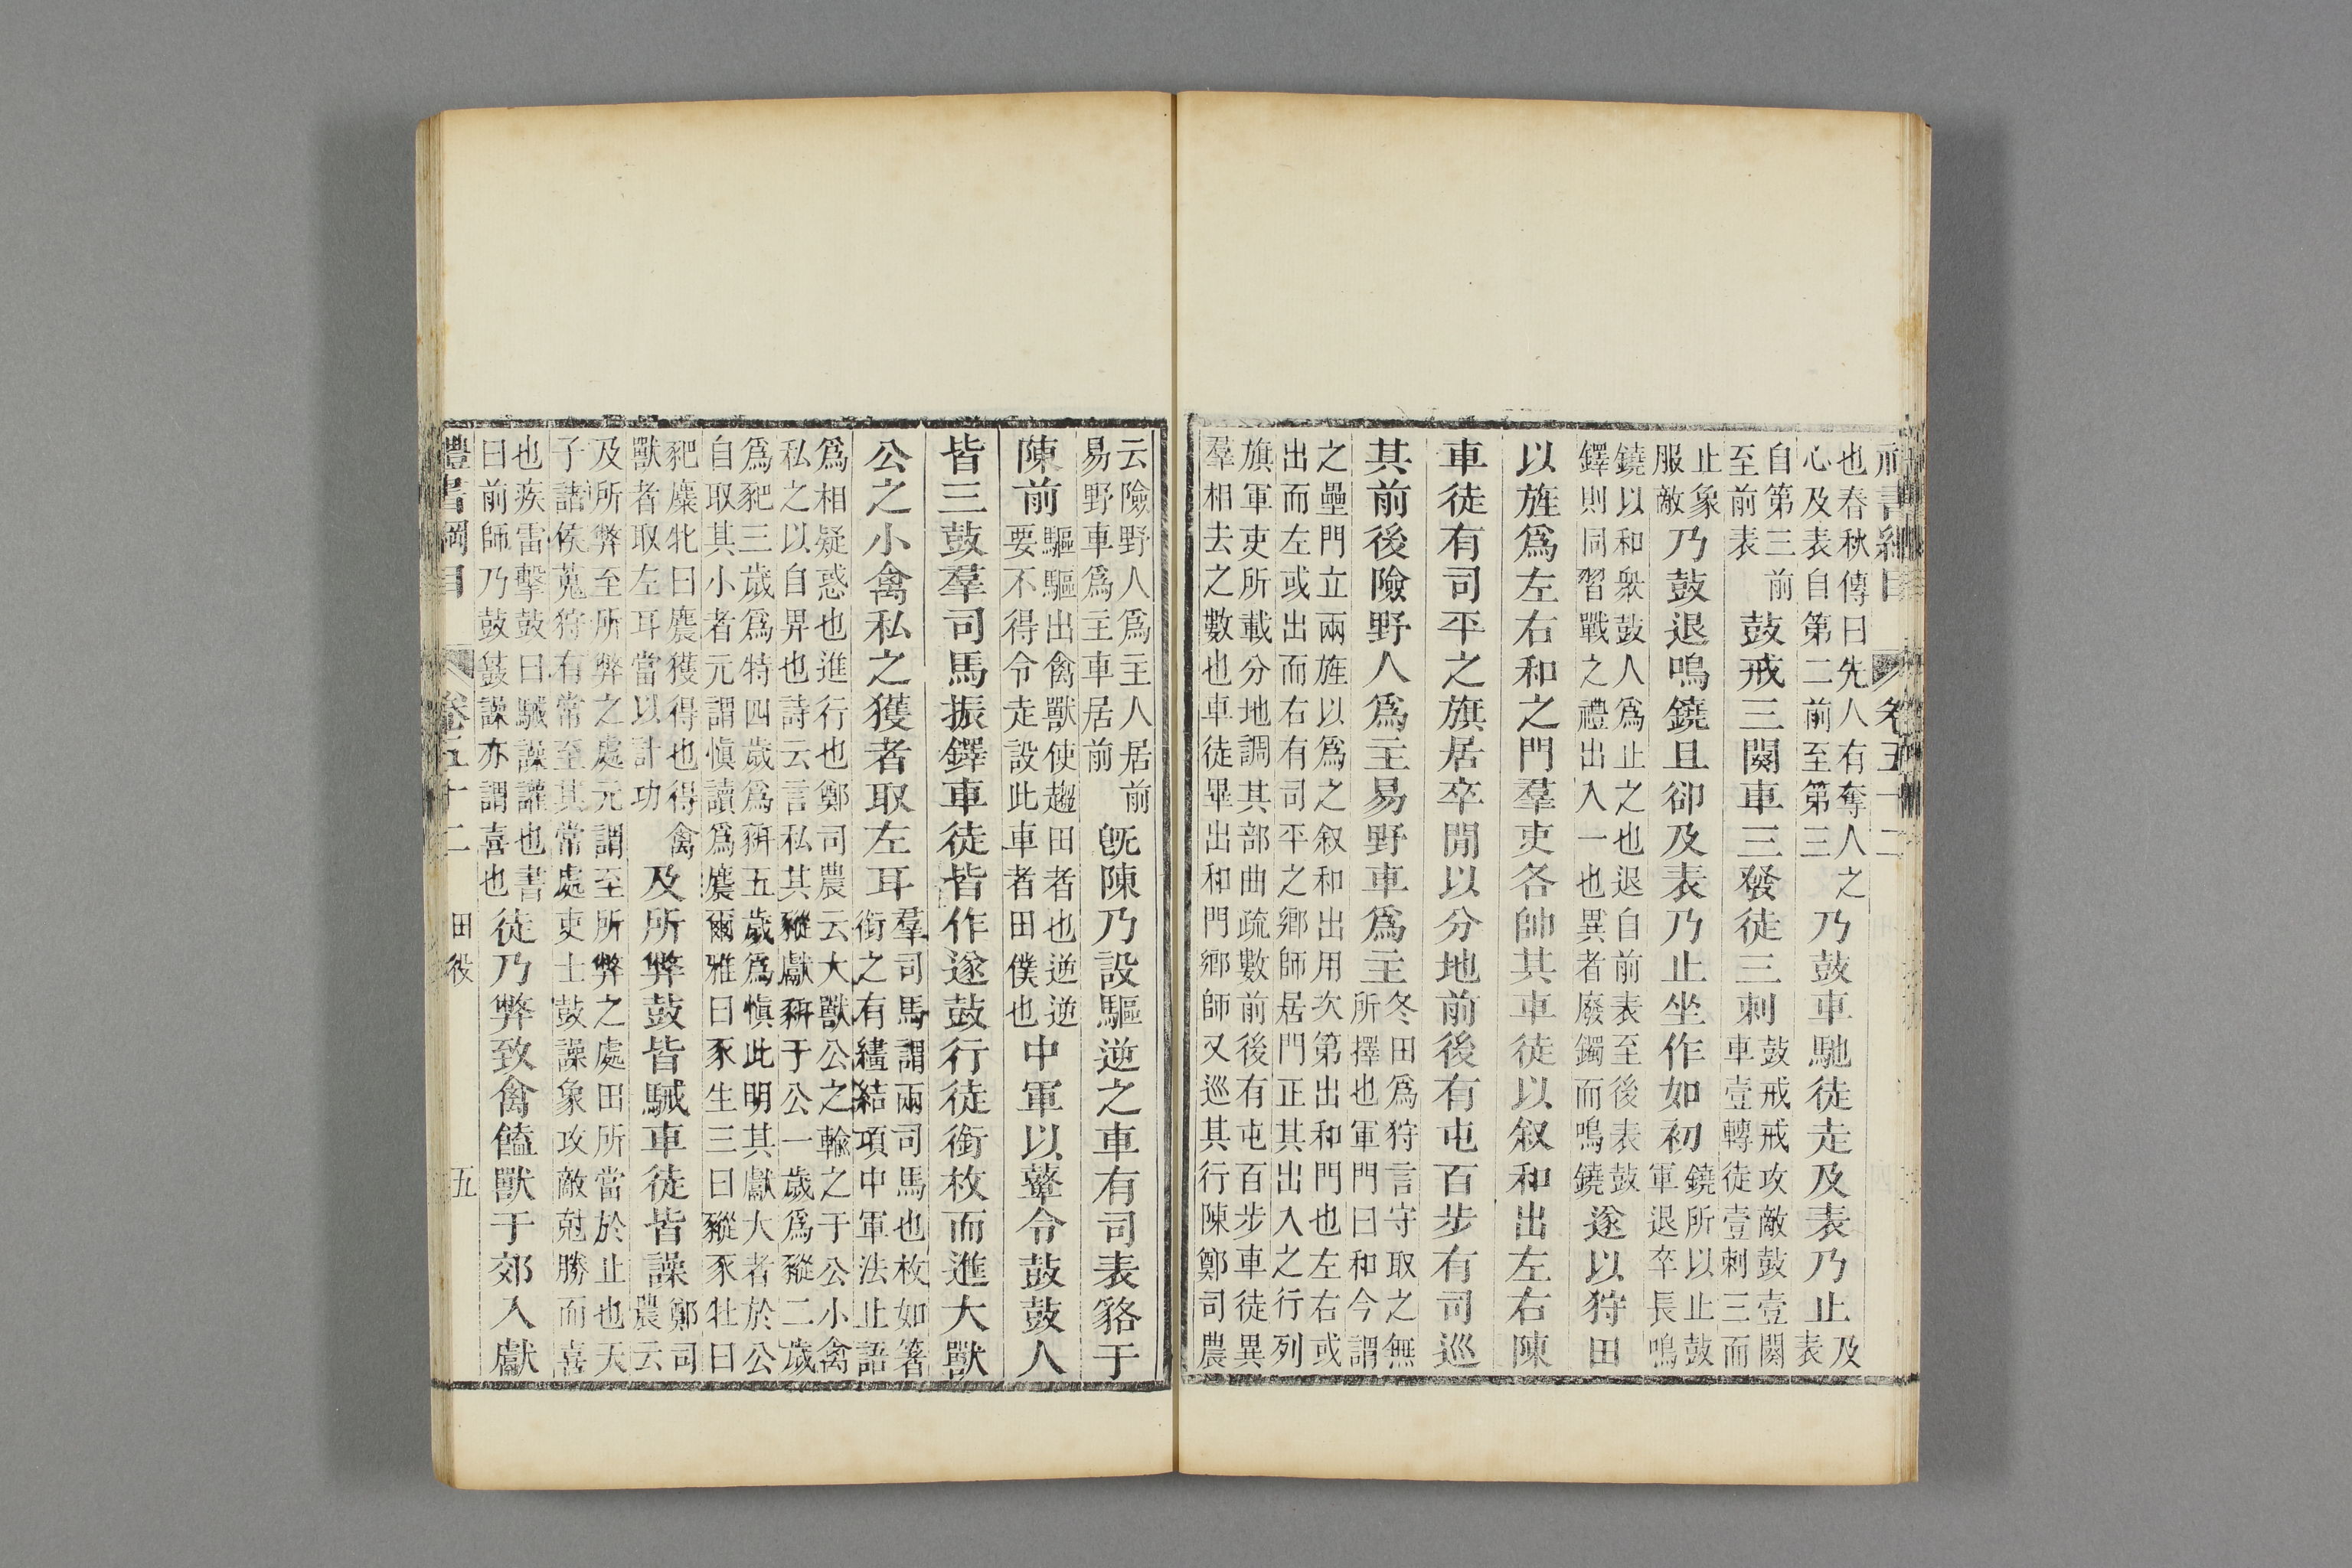 禮書綱目 卷五十二
也春秋傳曰先人有奪人之
心及表自第二前至第三
乃鼓車馳徒走及表乃止及
表
自第三前
至前表
鼓戒三闋車三發徒三刺鼓戒戒攻敵鼓壹闋
車壹轉徒壹刺三而
止象
服敵
乃鼓退鳴鐃且卻及表乃止坐作如初鐃所以止鼓
軍退卒長鳴
鐃以和衆鼓人爲止之也退自前表至後表鼓
鐸則同習戰之禮出入一也異者廢鐲而鳴鐃
遂以狩田
以旌爲左右和之門羣吏各帥其車徒以叙和出左右陳
車徒有司平之旗居卒閒以分地前後有屯百步有司巡
其前後險野人爲主易野車爲主冬田爲狩言守取之無
所擇也軍門曰和今謂
之壘門立兩旌以爲之叙和出用次第出和門也左右或
出而左或出而右有司平之鄉師居門正其出入之行列
旗軍吏所載分地調其部曲疏數前後有屯百步車徒異
羣相去之數也車徒畢出和門鄉師又巡其行陳鄭司農
云險野人爲主人居前
易野車爲主車居前
旣陳乃設驅逆之車有司表貉于
陳前驅驅出禽獸使趨田者也逆逆
要不得令走設此車者田僕也
中軍以鼙令鼓鼓人
皆三鼓羣司馬振鐸車徒皆作遂鼓行徒銜枚而進大獸
公之小禽私之獲者取左耳羣司馬謂兩司馬也枚如箸
銜之有繣結項中軍法止語
爲相疑惑也進行也鄭司農云大獸公之輸之于公小禽
私之以自畀也詩云言私其豵獻豜于公一歲爲豵二歲
爲豝三歲爲特四歲爲豜五歲爲愼此明其獻大者於公
自取其小者元謂愼讀爲麎爾雅曰豕生三曰豵豕牡曰
豝麋牝曰麎獲得也得禽
獸者取左耳當以計功
及所弊鼓皆駴車徒皆譟鄭司
農云
及所弊至所弊之處元謂至所弊之處田所當於止也天
子諸侯蒐狩有常至其常處吏士鼓譟象攻敵尅勝而喜
也疾雷擊鼓曰駴譟讙也書
曰前師乃鼓鼓譟亦謂喜也
徒乃弊致禽饁獸于郊入獻
禮書綱目 卷五十二 田役 五